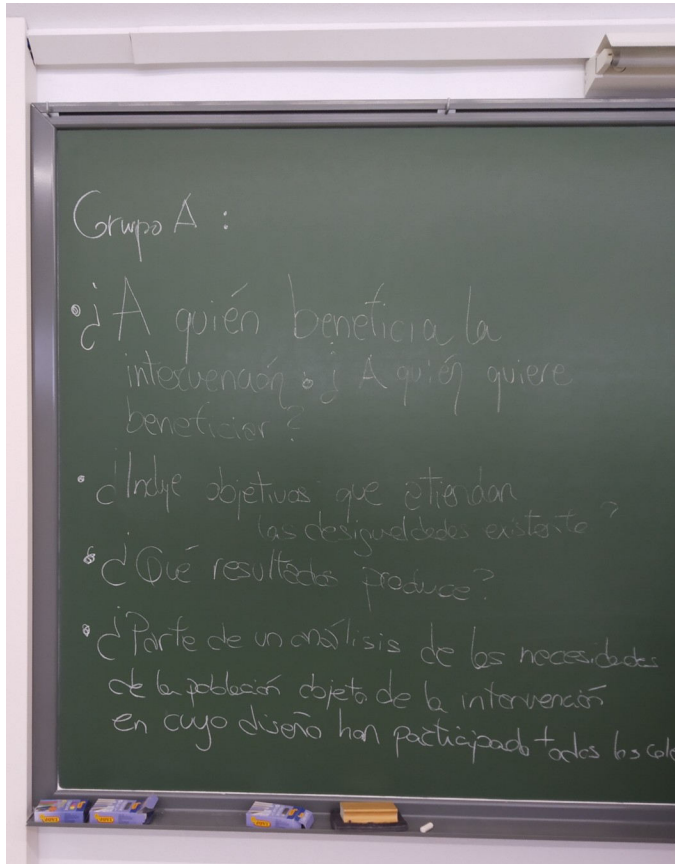 Grupo A :
• ¿A quién beneficia la
intervención o ¿ A quién quiere
beneficiar?
• ¿Incluye objetivos que atiendan
las desigualdades existente?
• ¿Qué resultados produce?
• ¿Parte de un análisis de las necesidades
de la población objeto de la intervención
en cuyo diseño han participado todos los cole